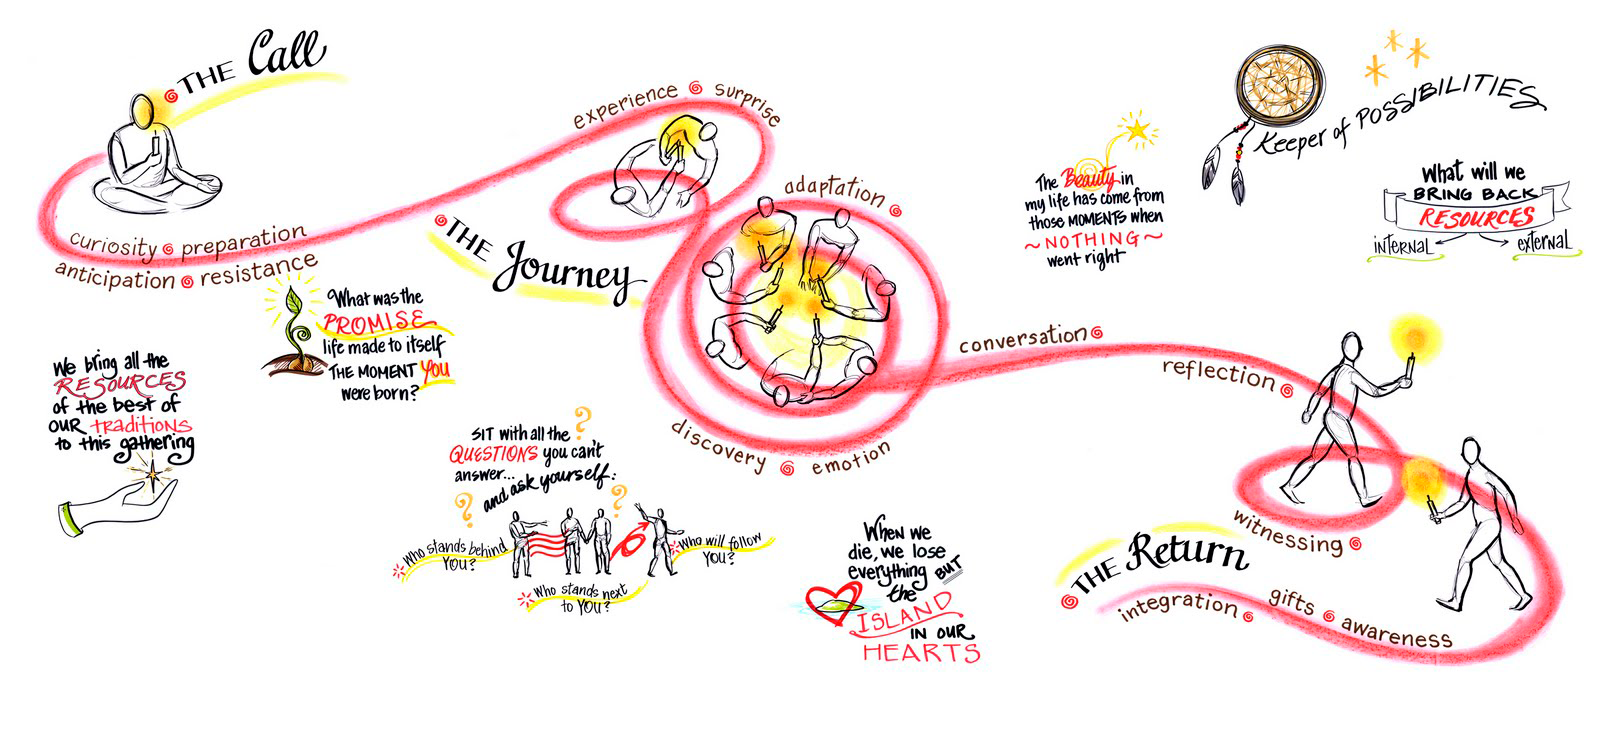 THE Call
curiosity preparation
anticipation resistance
We bring all the
RESOURCES
of the best of
OUR traditions
to this gathering
What was the
PROMISE
life made to itself
THE MOMENT YOU
were born?
THE Journey
experience surprise
adaptation
discovery emotion
SIT with all the ?
QUESTIONS you can't
answer...
and ask yourself:
?
?
Who stands behind
YOU?
Who stands next
to YOU?
Who will follow
YOU?
When we
die, we lose
everything BUT
the
ISLAND
IN OUR
HEARTS
conversation
reflection
The Beauty in
my life has come from
those MOMENTS when
~NOTHING~
went right
Keeper of POSSIBILITIES
What will we
BRING BACK
RESOURCES
internal external
witnessing
THE Return
integration
gifts awareness